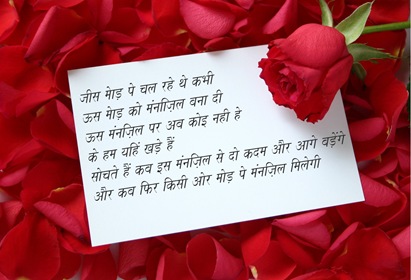 जीस मोड़ पे चल रहे थे कभी
ऊस मोड़ को मंनज़िल बना दी
ऊस मंनज़िल पर अब कोइ नही हे
के हम यहिं खड़े हैं
सोचते हैं कब इस मंनज़िल से दो कदम और आगे बड़ेंगे
और कब फिर किसी ओर मोड़ पे मंनज़िल मिलेगी